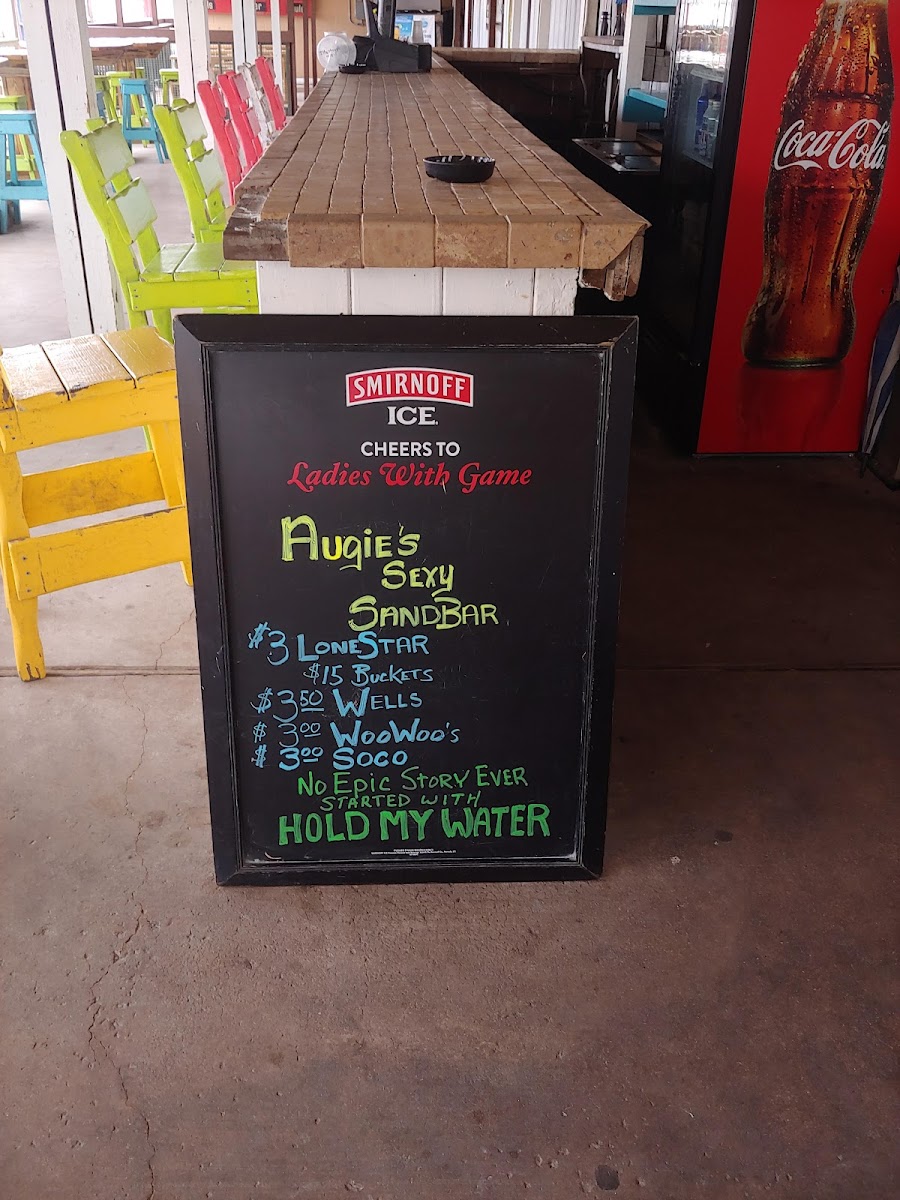 Coca-Cola
SMIRNOFF
ICE
CHEERS TO
Ladies With Game
AUGIE'S
SEXY
SANDBAR
$3 LONESTAR
$15 BUCKETS
$3.50 WELLS
$3.00 WOOWOO'S
$3.00 SOCO
NO EPIC STORY EVER
STARTED WITH
HOLD MY WATER